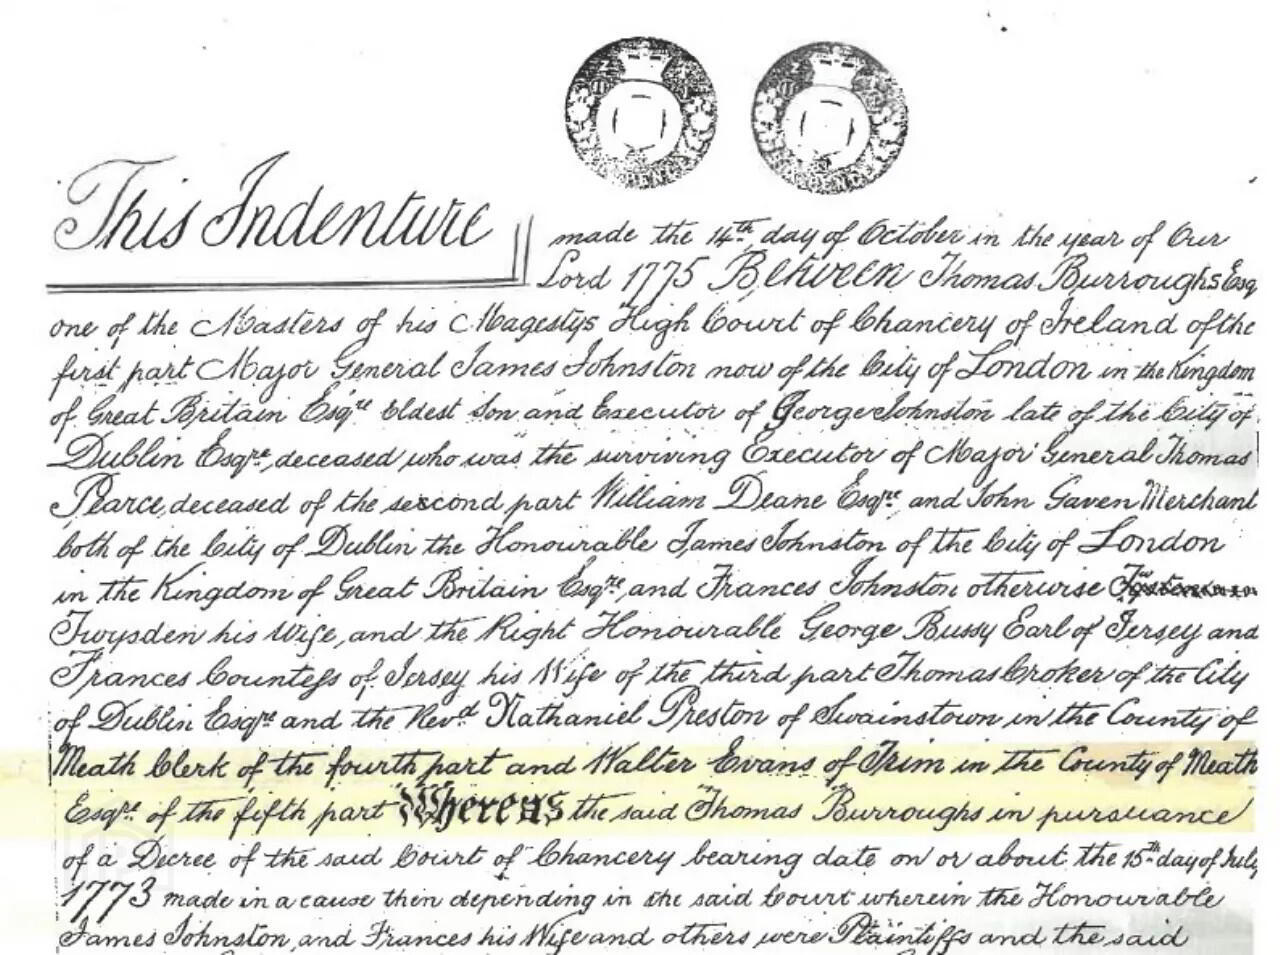 This Indenture made the 14th day of October in the year of Our
Lord 1775 Between Thomas Burroughs Esq
one of the Masters of his Magestys High Court of Chancery of Ireland of the
first part Major General James Johnston now of the City of London in the Kingdom
of Great Britain Esqre Eldest Son and Executor of George Johnston late of the City of
Dublin Esqre, deceased who was the surviving Executor of Major General Thomas
Pearce, deceased of the second part William Deane Esqre and John Gaven Merchant
both of the City of Dublin the Honourable James Johnston of the City of London
in the Kingdom of Great Britain Esqre, and Frances Johnston otherwise
Twysden his Wife, and the Right Honourable George Bussy Earl of Jersey and
Frances Countess of Jersey his Wife of the third part Thomas Croker of the City
of Dublin Esqre and the Revd Nathaniel Preston of Swainstown in the County of
Meath Clerk of the fourth part and Walter Evans of Trim in the County of Meath
Esqre of the fifth part Whereas the said Thomas Burroughs in pursuance
of a Decree of the said Court of Chancery bearing date on or about the 15th day of July
1773 made in a cause then depending in the said Court wherein the Honourable
James Johnston, and Frances his Wife and others were Plaintiffs and the said